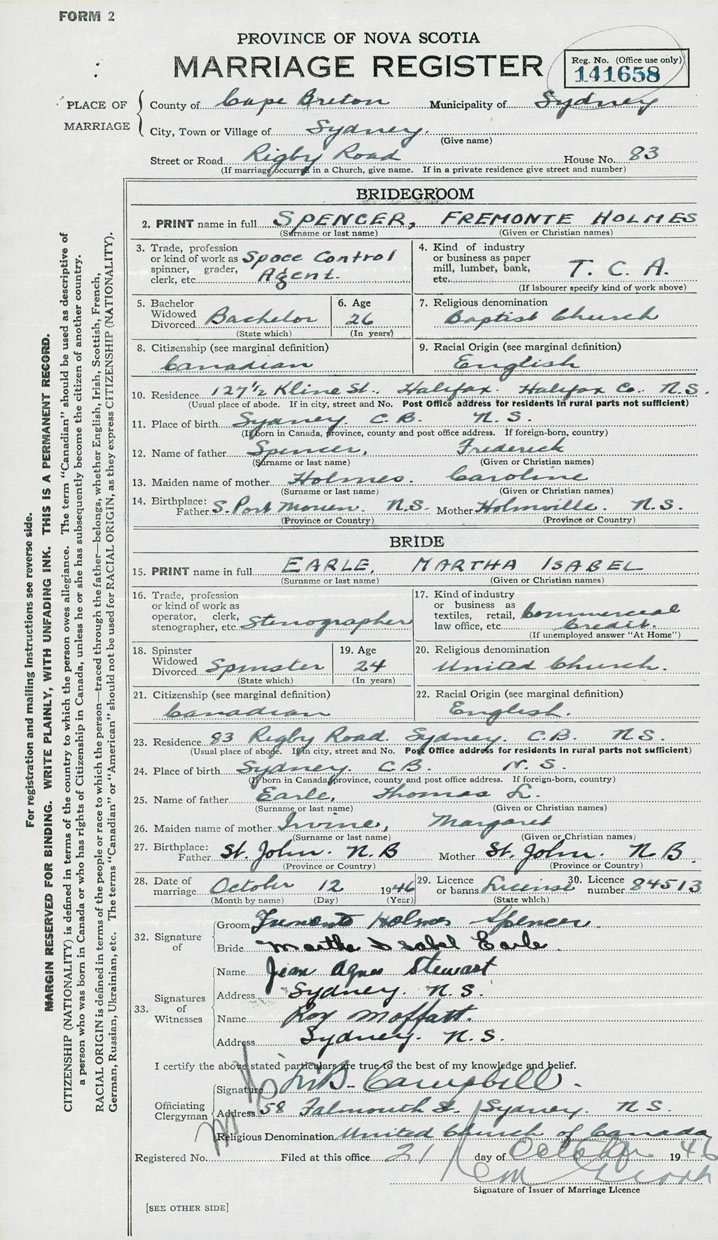 FORM 2
PROVINCE OF NOVA SCOTIA
MARRIAGE REGISTER
Reg. No. (Office use only)
141658
PLACE OF MARRIAGE
County of Cape Breton Municipality of Sydney
City, Town or Village of Sydney.
(Give name)
Street or Road Rigby Road House No. 83
(If marriage occurred in a Church, give name. If in a private residence give street and number)
BRIDEGROOM
2. PRINT name in full SPENCER, FREMONTE HOLMES
(Surname or last name) (Given or Christian names)
3. Trade, profession or kind of work as spinner, grader, clerk, etc. Space Control Agent.
4. Kind of industry or business as paper mill, lumber, bank, etc. T. C. A.
(If labourer specify kind of work above)
5. Bachelor Widowed Divorced Bachelor
(State which)
6. Age 26
(In years)
7. Religious denomination
Baptist Church
8. Citizenship (see marginal definition)
Canadian
9. Racial Origin (see marginal definition)
English
10. Residence 127½ Kline St. Halifax. Halifax Co. N.S.
(Usual place of abode. If in city, street and No. Post Office address for residents in rural parts not sufficient)
11. Place of birth Sydney C.B. N.S.
(If born in Canada, province, county and post office address. If foreign-born, country)
12. Name of father Spencer, Frederick
(Surname or last name) (Given or Christian names)
13. Maiden name of mother Holmes. Caroline
(Surname or last name) (Given or Christian names)
14. Birthplace: Father S. Port Morien. N.S. Mother Holmville. N.S.
(Province or Country) (Province or Country)
BRIDE
15. PRINT name in full EARLE, MARTHA ISABEL
(Surname or last name) (Given or Christian names)
16. Trade, profession or kind of work as operator, clerk, stenographer, etc. Stenographer
17. Kind of industry or business as textiles, retail, law office, etc. Commercial Credit.
(If unemployed answer "At Home")
18. Spinster Widowed Divorced Spinster
(State which)
19. Age 24
(In years)
20. Religious denomination
United Church.
21. Citizenship (see marginal definition)
Canadian
22. Racial Origin (see marginal definition)
English.
23. Residence 83 Rigby Road. Sydney. C.B. N.S.
(Usual place of abode. If in city, street and No. Post Office address for residents in rural parts not sufficient)
24. Place of birth Sydney C.B. N.S.
(If born in Canada, province, county and post office address. If foreign-born, country)
25. Name of father Earle, Thomas L.
(Surname or last name) (Given or Christian names)
26. Maiden name of mother Irvine, Margaret
(Surname or last name) (Given or Christian names)
27. Birthplace: Father St. John. N.B Mother St. John. N.B.
(Province or Country) (Province or Country)
28. Date of marriage October 12 1946
(Month by name) (Day) (Year)
29. Licence or banns License
(State which)
30. Licence number 84513
32. Signature of
Groom Fremonte Holmes Spencer.
Bride Martha Isabel Earle.
33. Signatures of Witnesses
Name Jean Agnes Stewart
Address Sydney N.S.
Name Roy Moffatt.
Address Sydney. N.S.
I certify the above stated particulars are true to the best of my knowledge and belief.
Officiating Clergyman
Signature Campbell.
Address 58 Falmouth St. Sydney. N.S.
Religious Denomination United Church of Canada
Registered No. Filed at this office 21 day of October 1946
Signature of Issuer of Marriage Licence
[SEE OTHER SIDE]
For registration and mailing instructions see reverse side.
MARGIN RESERVED FOR BINDING. WRITE PLAINLY, WITH UNFADING INK. THIS IS A PERMANENT RECORD.
CITIZENSHIP (NATIONALITY) is defined in terms of the country to which the person owes allegiance. The term "Canadian" should be used as descriptive of
a person who was born in Canada or who has rights of Citizenship in Canada, unless he or she has subsequently become the citizen of another country.
RACIAL ORIGIN is defined in terms of the people or race to which the person—traced through the father—belongs, whether English, Irish, Scottish, French,
German, Russian, Ukrainian, etc. The terms "Canadian" or "American" should not be used for RACIAL ORIGIN, as they express CITIZENSHIP (NATIONALITY).